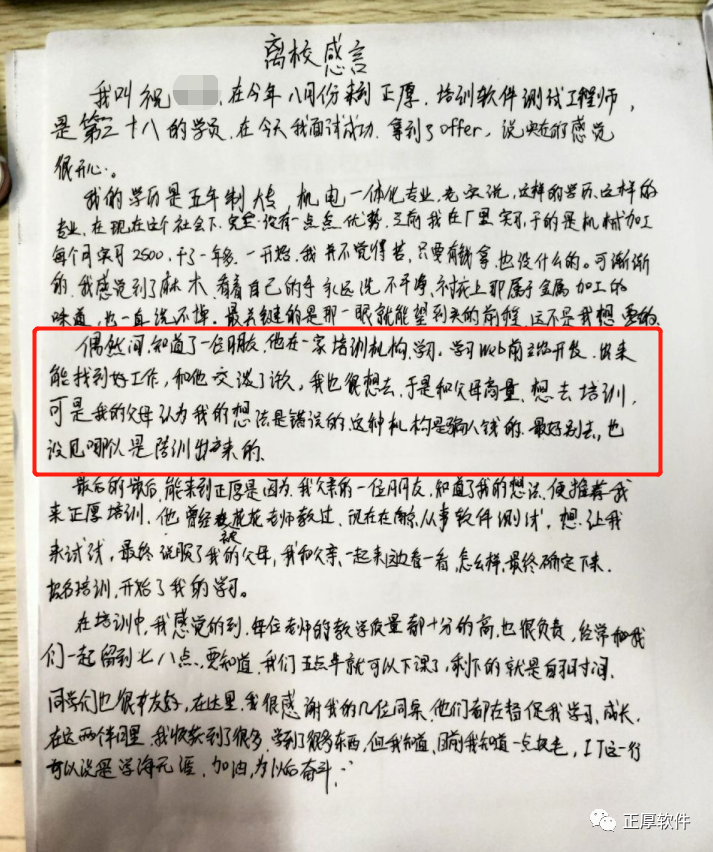 离校感言
我叫祝 在今年八月份来到正厚.培训软件测试工程师,
是第二十八的学员.在今天我面试成功.拿到了offer,说实在的感觉
很开心.
我的学历是五年制大专,机电一体化专业,老实说,这样的学历.这样的
专业,在现在这个社会下.完全没有一点点优势.之前我在厂里实习,干的是机械加工
每个月实习2500,干了一年多.一开始,我并不觉得苦,只要有钱拿.也没什么的。可渐渐
的.我感觉到了麻木.看着自己的手永远洗不干净,衬衣上那属于金属加工的
味道,也一直洗不掉.最关键的是那一眼就能望到头的前程,这不是我想要的.
偶然间.知道了一位朋友.他在一家培训机构,学习.学习Web前端开发.出来
能找到好工作,和他交谈了许久,我也很想去,于是和父母商量、想去培训,
可是我的父母认为我的想法是错误的.这种机构是骗人钱的.最好别去,也
没见哪个是培训出来的.
最后的最后,能来到正厚是因为.我父亲的一位朋友,知道了我的想法.便推荐我
来正厚培训.他曾经被花花老师教过.现在在南京从事软件测试,想让我
来试试,最终说服了我的父母,我和父亲.一起来这边看一看,怎么样,最终确定下来.
报名培训,开始了我的学习。
在培训中,我感觉的到.每位老师的教学质量都十分的高,也很负责,经常和我
们一起留到七八点.要知道.我们五点半就可以下课了,剩下的就是自习时间.
同学们也很有友好,在这里.我很感谢我的几位同桌,他们都在督促我学习、成长.
在这两个月里.我收获到了很多.学到了很多东西,但我知道.目前我知道一点皮毛,IT这一行
可以说是学海无涯.加油,为以后奋斗.
正厚软件